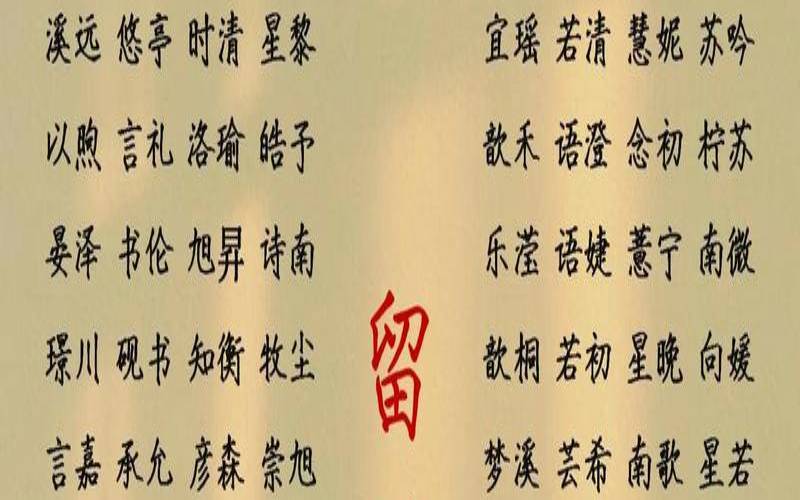 溪远 悠亭 时清 星黎
以煦 言礼 洛瑜 皓予
晏泽 书伦 旭昇 诗南
璟川 砚书 知衡 牧尘
言嘉 承允 彦森 崇旭
留
宜瑶 若清 慧妮 苏吟
歆禾 语澄 念初 柠苏
乐滢 语婕 薏宁 南微
歆桐 若初 星晚 向媛
梦溪 芸希 南歌 星若